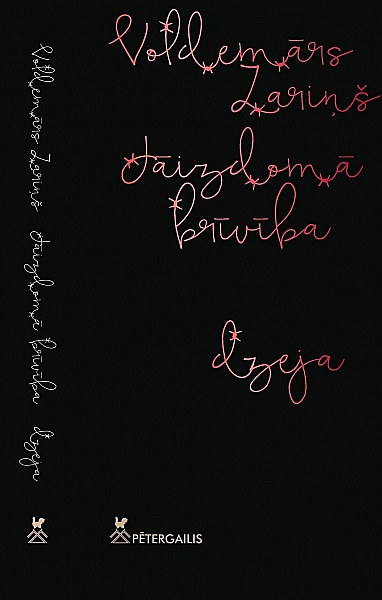 Voldemārs Zariņš tāizdomā brīvība dzeja
Voldemārs
Zariņš
tāizdomā
brīvība
dzeja
PĒTERGAILIS